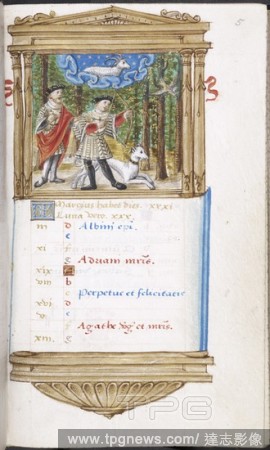 5
Marcius habet dies. xxxi.
Luna vero. xxx.
iii d Albini epi.
e
xi f
g Adriani mris.
xix A
viii b
c Perpetue et felicitatis
xvi d
v e
f Agathe Vg̃ et mris.
xiii g
TPG
www.tpgnews.com/達志影像